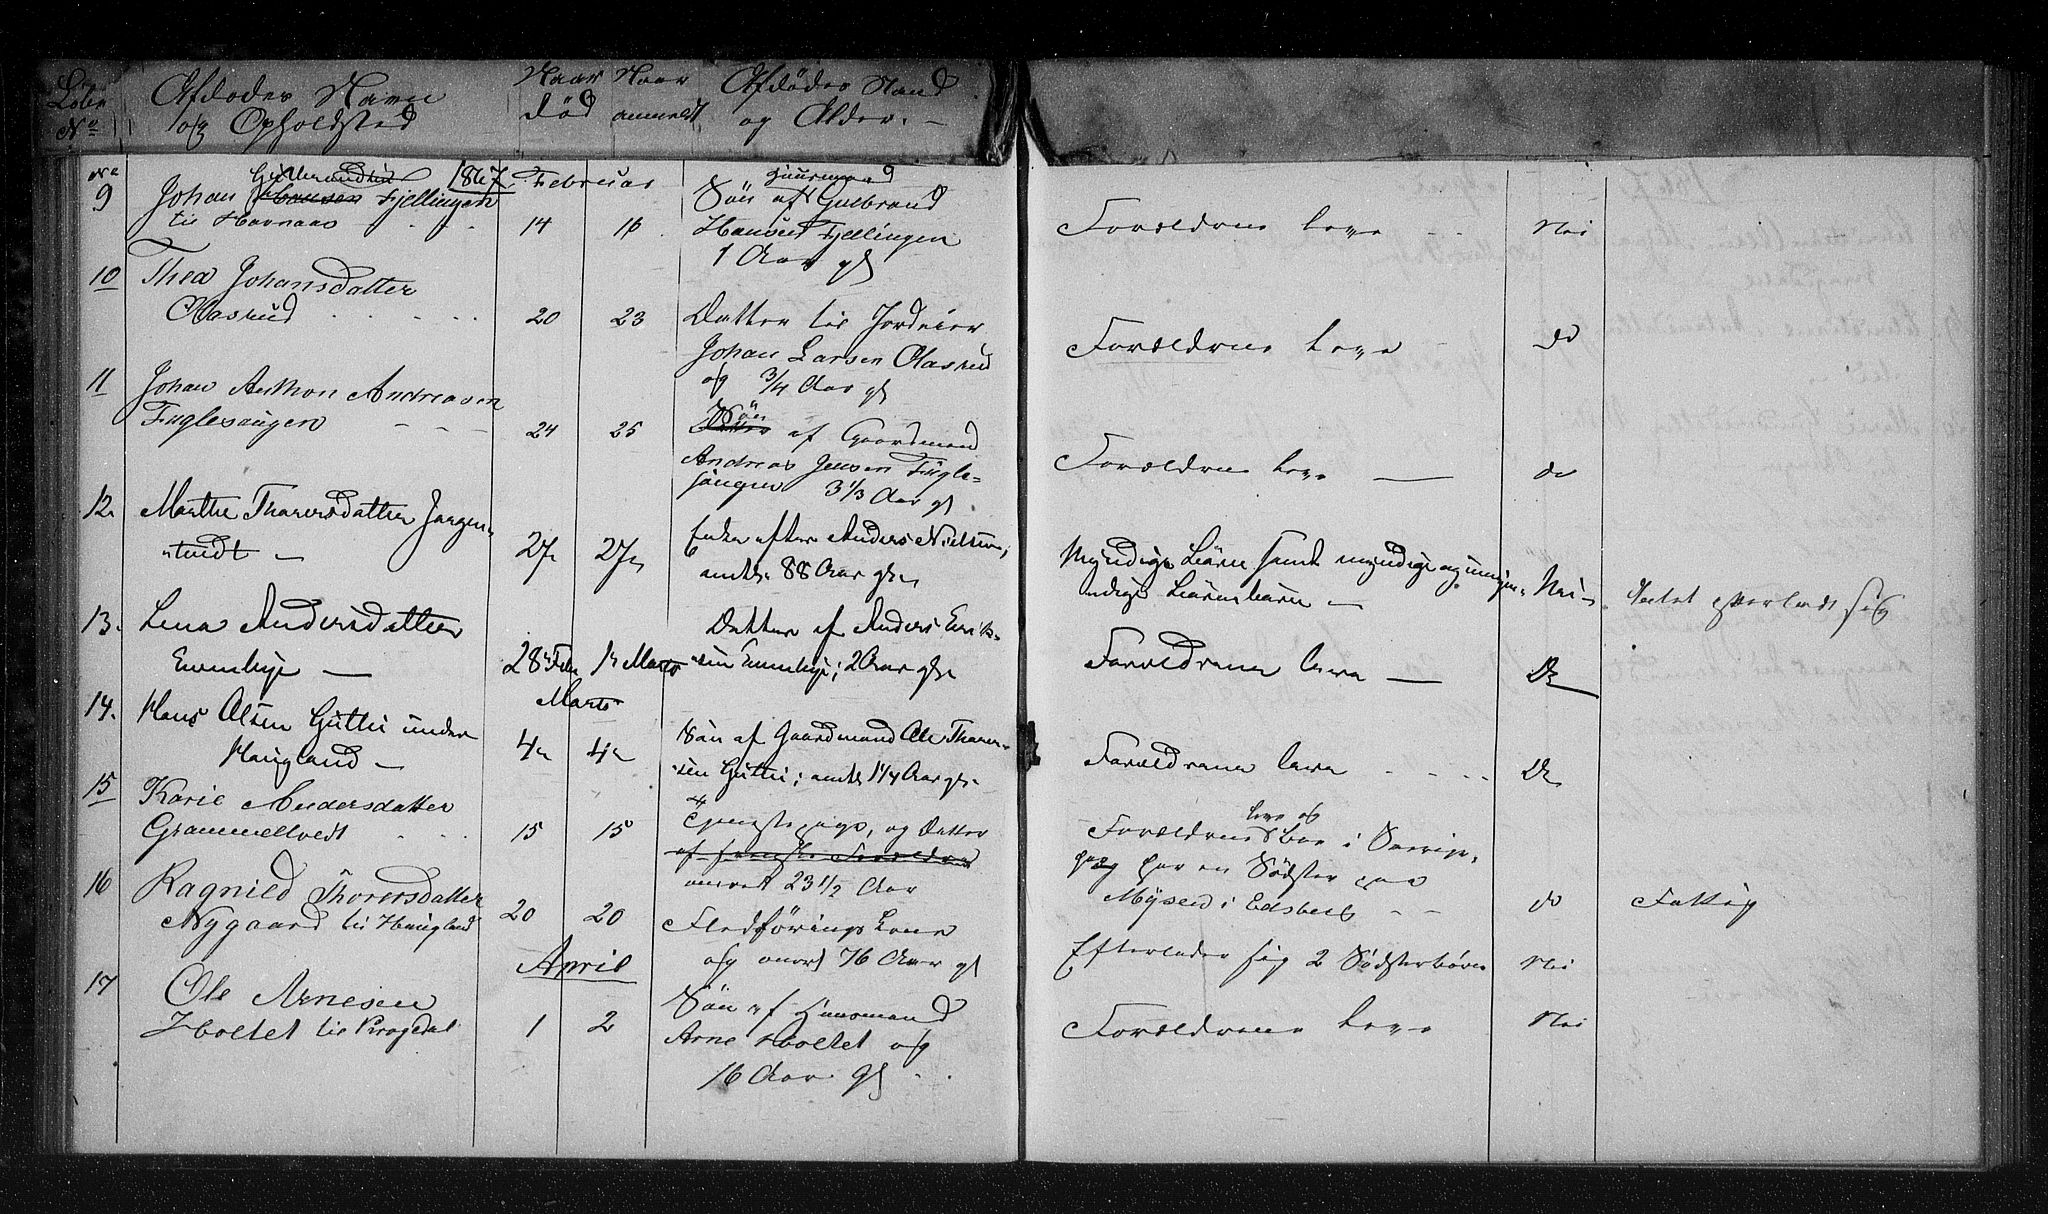 Löbe No
Afdødes Navn og Opholdsted
Naar død
Naar anmeldt
Afdødes Stand og Alder. –
No 1867. Februar
9 Johan Gulbrandsen Hansen Fjellingen
til Havnaas 14 16
Huusmand
Søn af Gulbrand
Hansen Fjellingen
1 Aar gl
Forældrene leve Nei
10 Thea Johansdatter
Olasrud 20 23
Datter til Jordeier
Johan Larsen Olasrud
og 3/4 Aar gl
Forældrene leve do
11 Johan Anthon Andreasen
Fuglesangen 24 25
Søn
Datter af Gaardmand
Andreas Jensen Fugle-
sangen 3 1/3 Aar gl
Forældrene leve — do
12. Marthe Thorersdatter Jørgen-
stuedt – 27 27
Enke efter Anders Nielsen;
omtr. 88 Aar gl.
Myndige Børn samt myndige og umyn-
dige Børnebørn – Nei –
Intet efterladt sig
13. Lena Andersdatter
Evenbye — 28 Feb 1 Marts
Datter af Anders Erik-
sen Evenbye; 2 Aar gl.
Forældrene leve — Do
Marts
14. Hans Olsen Guttu under
Haugland – 4 4
Søn af Gaardmand Ole Thorer-
sen Guttu; omtr. 1 1/4 Aar gl.
Forældrene leve Do
15 Karie Andersdatter
Grammeltvedt 15 15
Tjenestepige, og Datter
af svenske Forældre
omtrent 23 1/2 Aar
leve og
Forældrene boe i Sverige,
og har en Södster paa
Mysen i Edsberg – – do Fattig
16 Ragnild Thorersdatter
Nygaard til Haugland 20 20
Fledförings Lene
og omtrt 76 Aar gl
Efterlader sig 2 Södsterbörn Nei
April
17 Ole Arnesen
Holtet til Kragedal 1 2
Søn af Huusmand
Arne Holtet og
16 Aar gl
Forældrene leve Nei